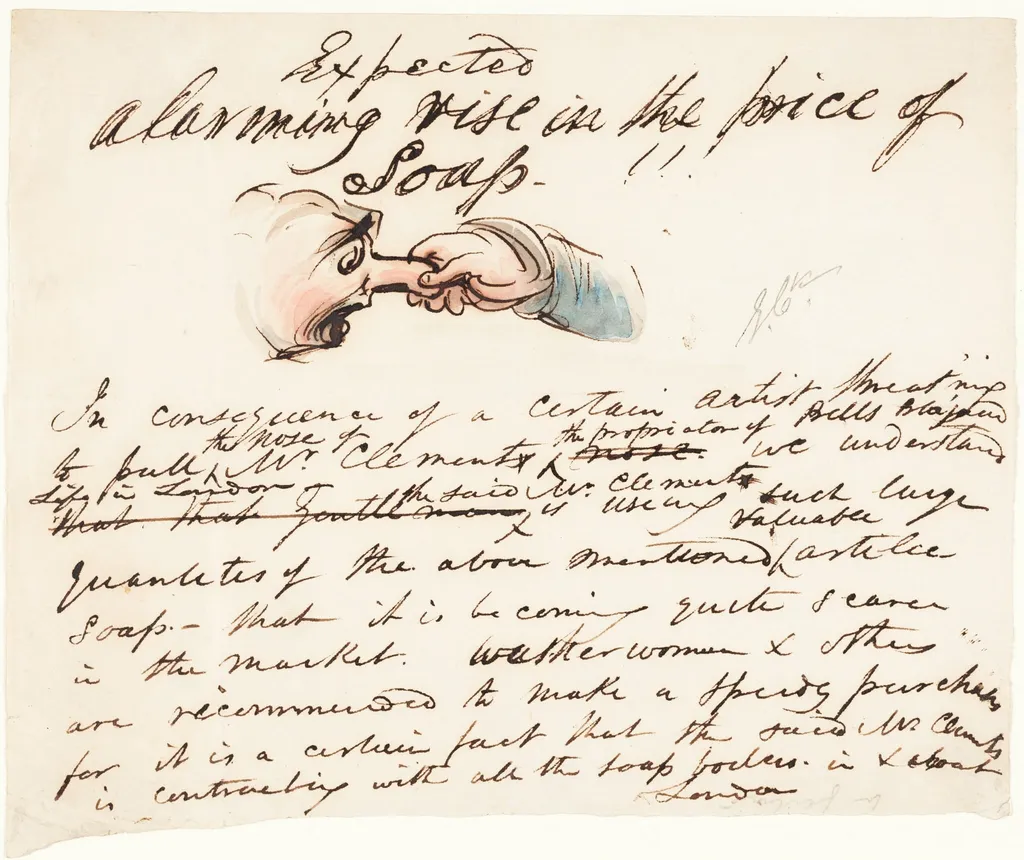 Expected
alarming rise in the price of
Soap. - !!!
G. Ck.
In consequence of a certain artist threat'nig
the Nose of the proprietor of Bells
to pull Mr. Clements nose. we understand
Life in London the said Mr. Clements
that that gentleman is using such large
valuable
quantites of the above mentioned article
Soap. - that it is becoming quite scarce
in the market. Washerwomen & others
are recommended to make a speedy purchase
for it is a certain fact that the said Mr. Clements
is contracting with all the soap boilers. in & about
London